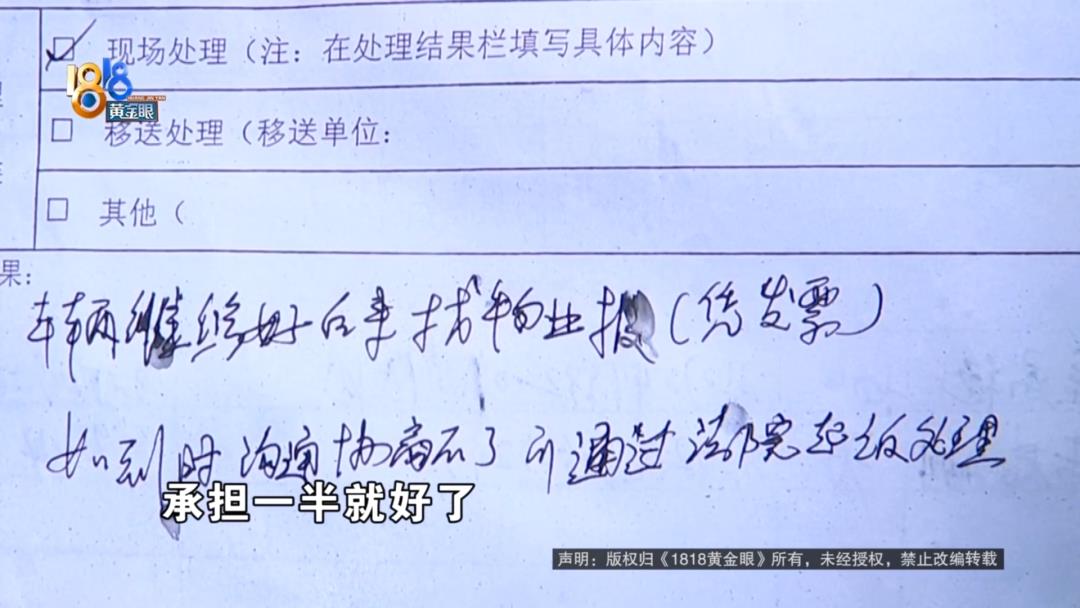 现场处理（注：在处理结果栏填写具体内容）
1818
黄金眼
移送处理（移送单位：
其他（
果：
车辆维修好后来找物业报（凭发票）
如到时沟通协商不了可通过法院起诉处理
承担一半就好了
声明：版权归《1818黄金眼》所有，未经授权，禁止改编转载